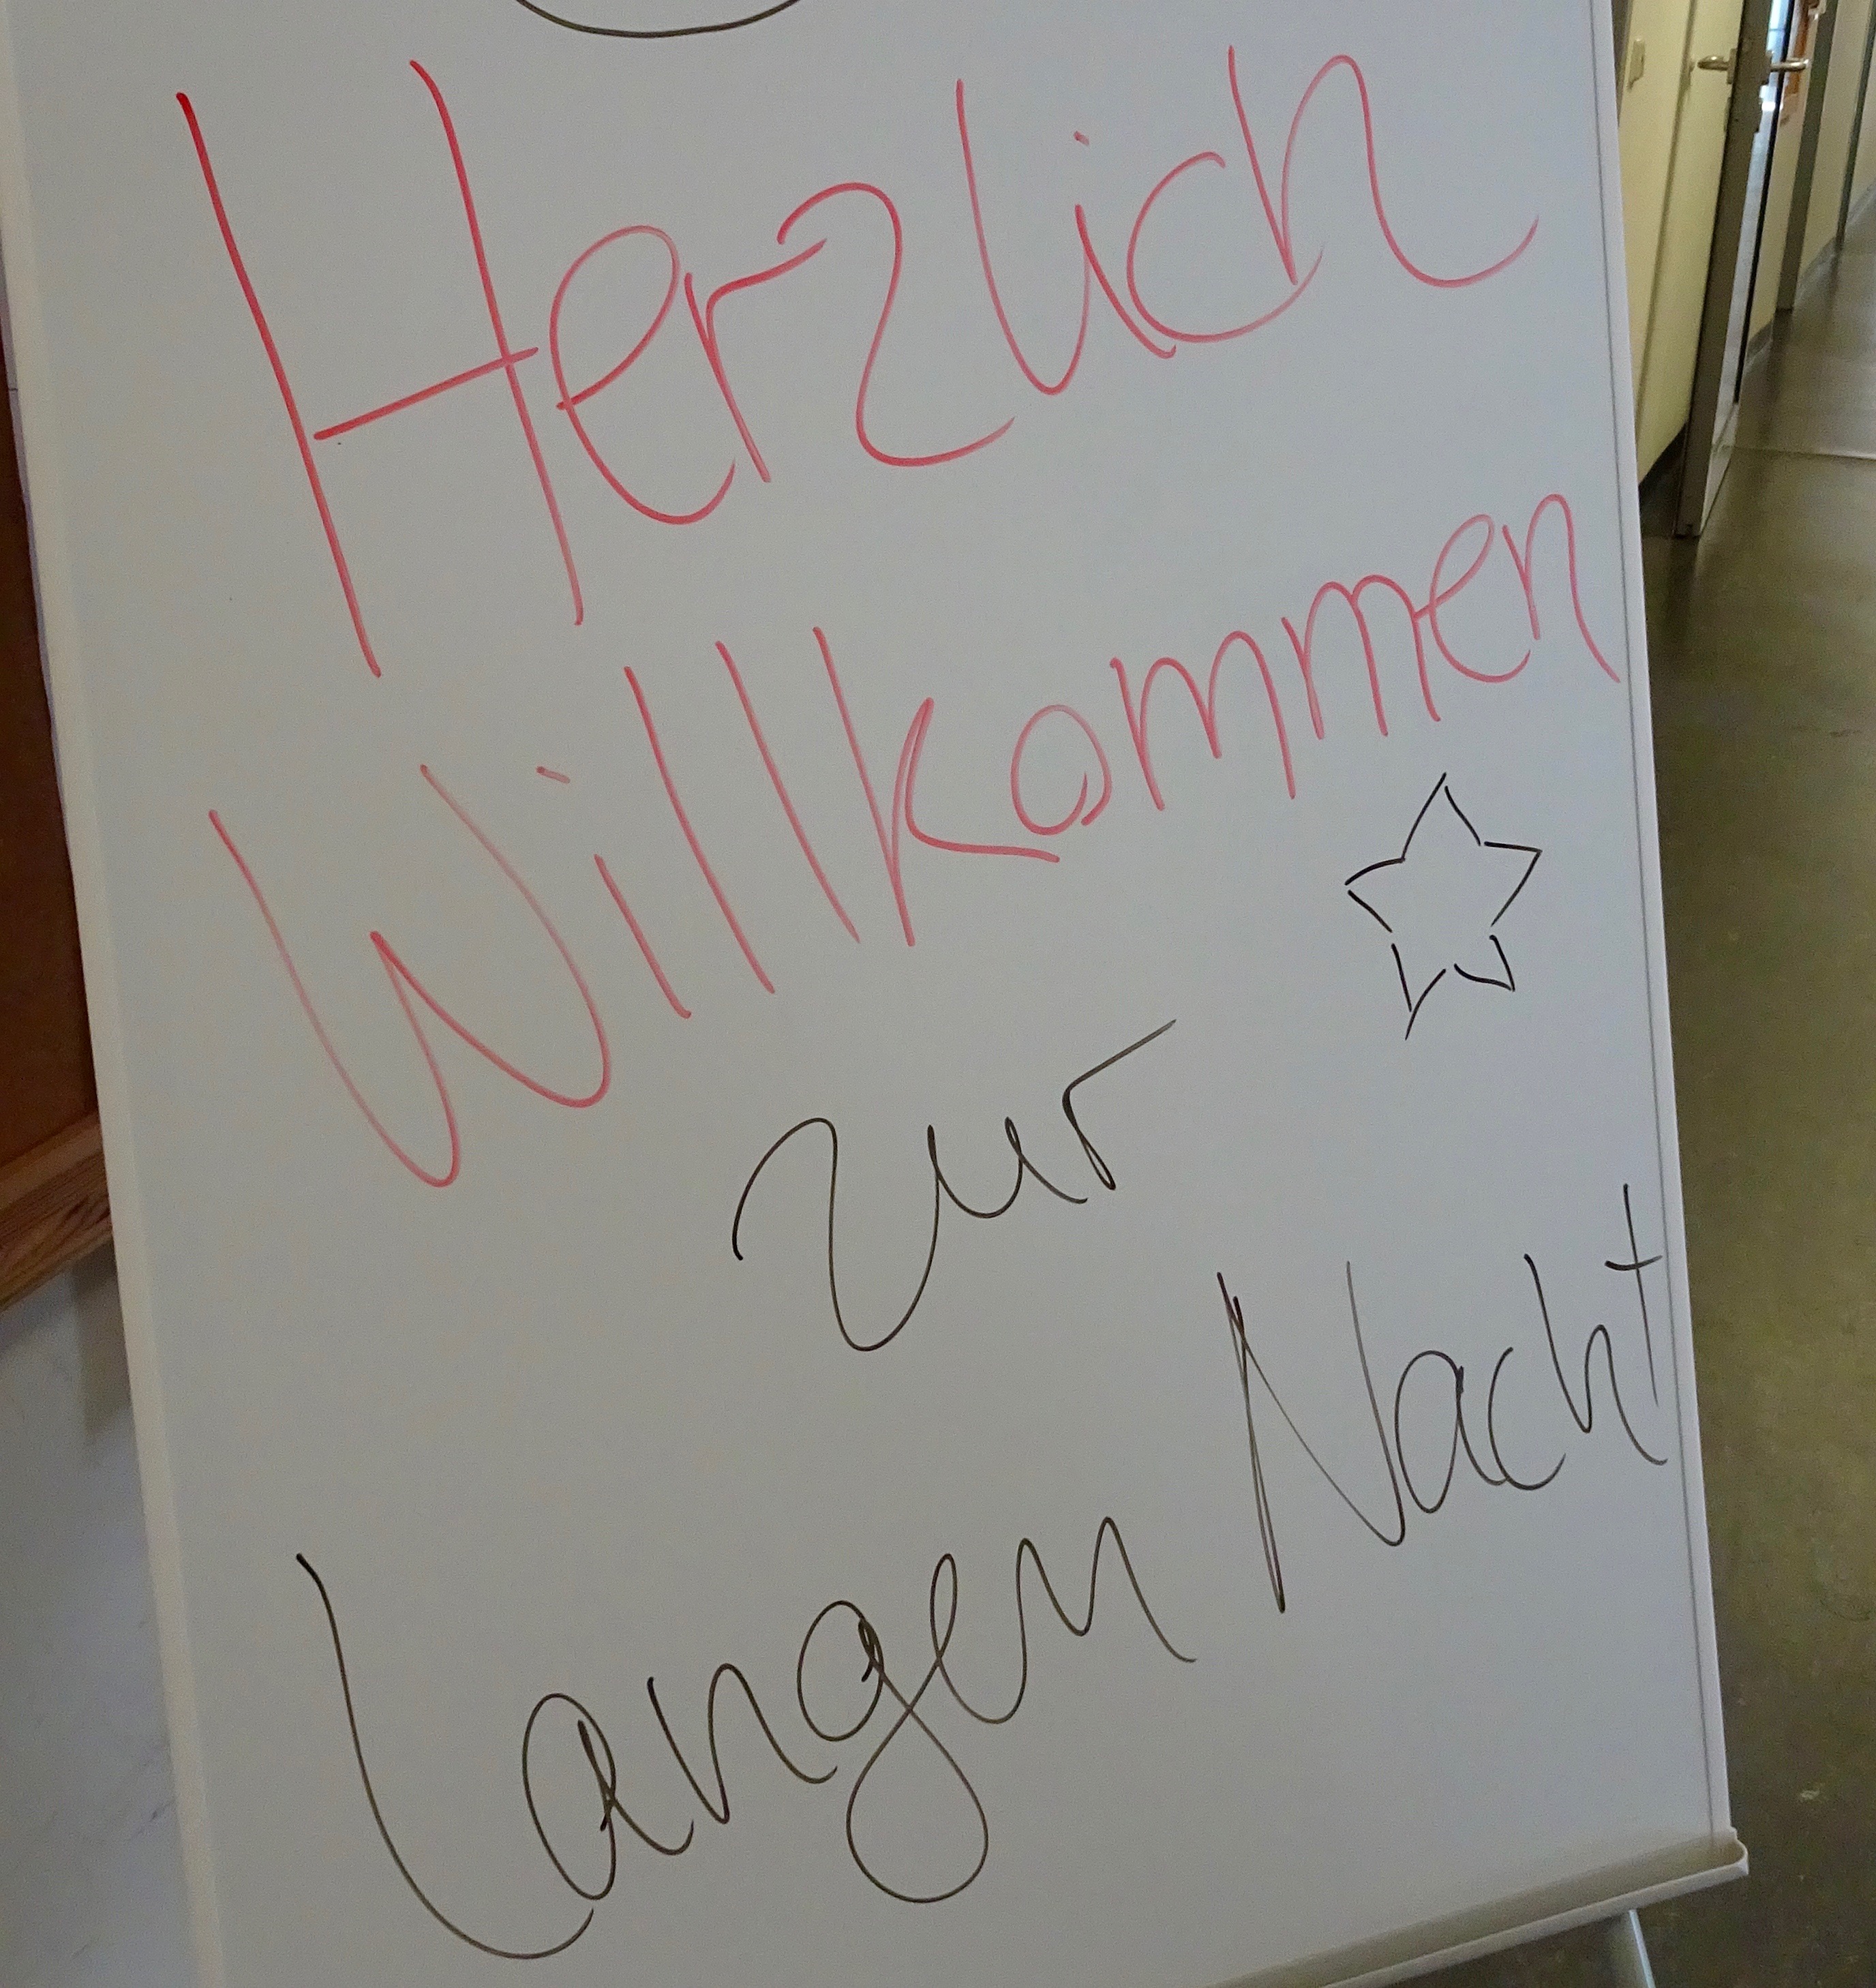 Herzlich
Willkommen
zur
Langen Nacht